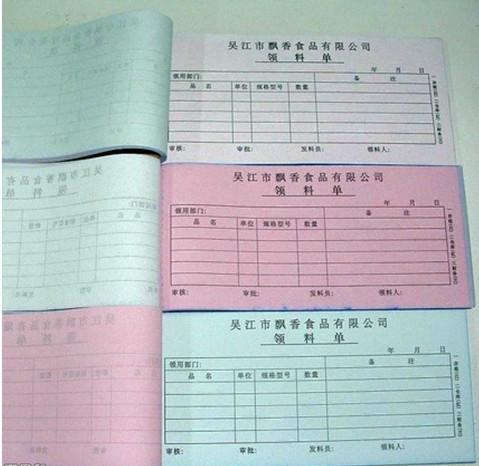 吴江市飘香食品有限公司
领料单
年 月 日
领用部门:
品名 单位 规格型号 数量 备注
审核: 审批: 发料员: 领料人:
吴江市飘香食品有限公司
领料单
年 月 日
领用部门:
品名 单位 规格型号 数量 备注
审核: 审批: 发料员: 领料人:
吴江市飘香食品有限公司
领料单
年 月 日
领用部门:
品名 单位 规格型号 数量 备注
审核: 审批: 发料员: 领料人: